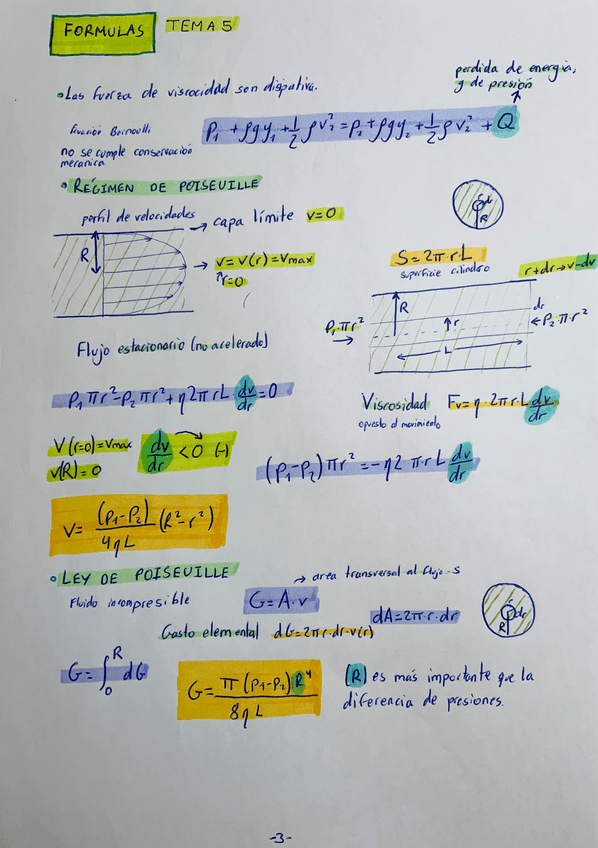 FORMULAS TEMA 5
•Las fuerza de viscocidad son disipativa.
perdida de energia,
y de presión
P₁ + ρgy₁ + 1/2 ρv₂² = P₂ + ρgy₂ + 1/2 ρv₂² + Q
Bernoulli
no se cumple conservación
mecanica
• RÉGIMEN DE POISEUILLE
perfil de velocidades → capa límite v=0
R
→ v = v(r) = vmax
r=0
dr
R
S = 2π·r·L
superficie cilindro
r+dr→v-dv
R
r
dr
L
P₁·πr²
→
← P₂·π·r²
Flujo estacionario (no acelerado)
P₁πr²-P₂πr²+η2πrL·dv/dr=0
Viscosidad Fv=η·2πrL dv/dr
opuesto al movimiento
V(r=0)=Vmax
v(R)=0
dv/dr <0 (-)
(P₁-P₂)πr²=-η2π·rL dv/dr
V= (P₁-P₂)/4ηL (R²-r²)
• LEY DE POISEUILLE
→ area transversal al flujo - S
Fluido incompresible
G=A·v
dA=2π·r·dr
R
dr
Gasto elemental dG=2πr·dr·v(r)
G=∫₀ᴿ dG
G= π(P₁-P₂)R⁴/8ηL
(R) es más importante que la
diferencia de presiones.
-3-